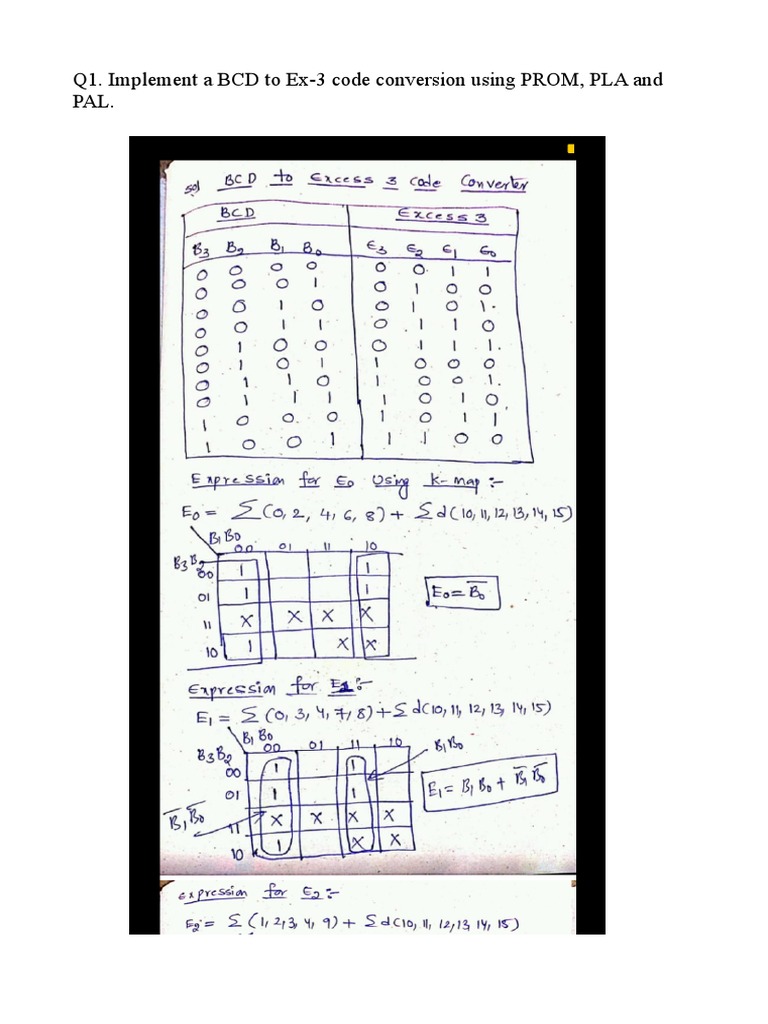 Q1. Implement a BCD to Ex-3 code conversion using PROM, PLA and
PAL.
Sol BCD to Excess 3 Code Converter
BCD Excess 3
B3 B2 B1 B0 E3 E2 E1 E0
0 0 0 0 0 0 1 1
0 0 0 1 0 1 0 0
0 0 1 0 0 1 0 1.
0 0 1 1 0 1 1 0
0 1 0 0 0 1 1 1.
0 1 0 1 1 0 0 0
0 1 1 0 1 0 0 1.
0 1 1 1 1 0 1 0.
1 0 0 0 1 0 1 1
1 0 0 1 1 1 0 0
Expression for E0 Using K-map :-
E0 = Σ(0, 2, 4, 6, 8) + Σd(10, 11, 12, 13, 14, 15)
B1B0
00 01 11 10
B3B2
00 1 1
01 1 1
11 X X X X
10 1 X X
E0 = B̅0
Expression for E1:-
E1 = Σ(0, 3, 4, 7, 8) + Σd(10, 11, 12, 13, 14, 15)
B1B0
00 01 11 10
B3B2
00 1 1
01 1 1
11 X X X X
10 1 X X
B1B0
B̅1B̅0
E1 = B1B0 + B̅1B̅0
expression for E2:-
E2 = Σ(1, 2, 3, 4, 9) + Σd(10, 11, 12, 13, 14, 15)